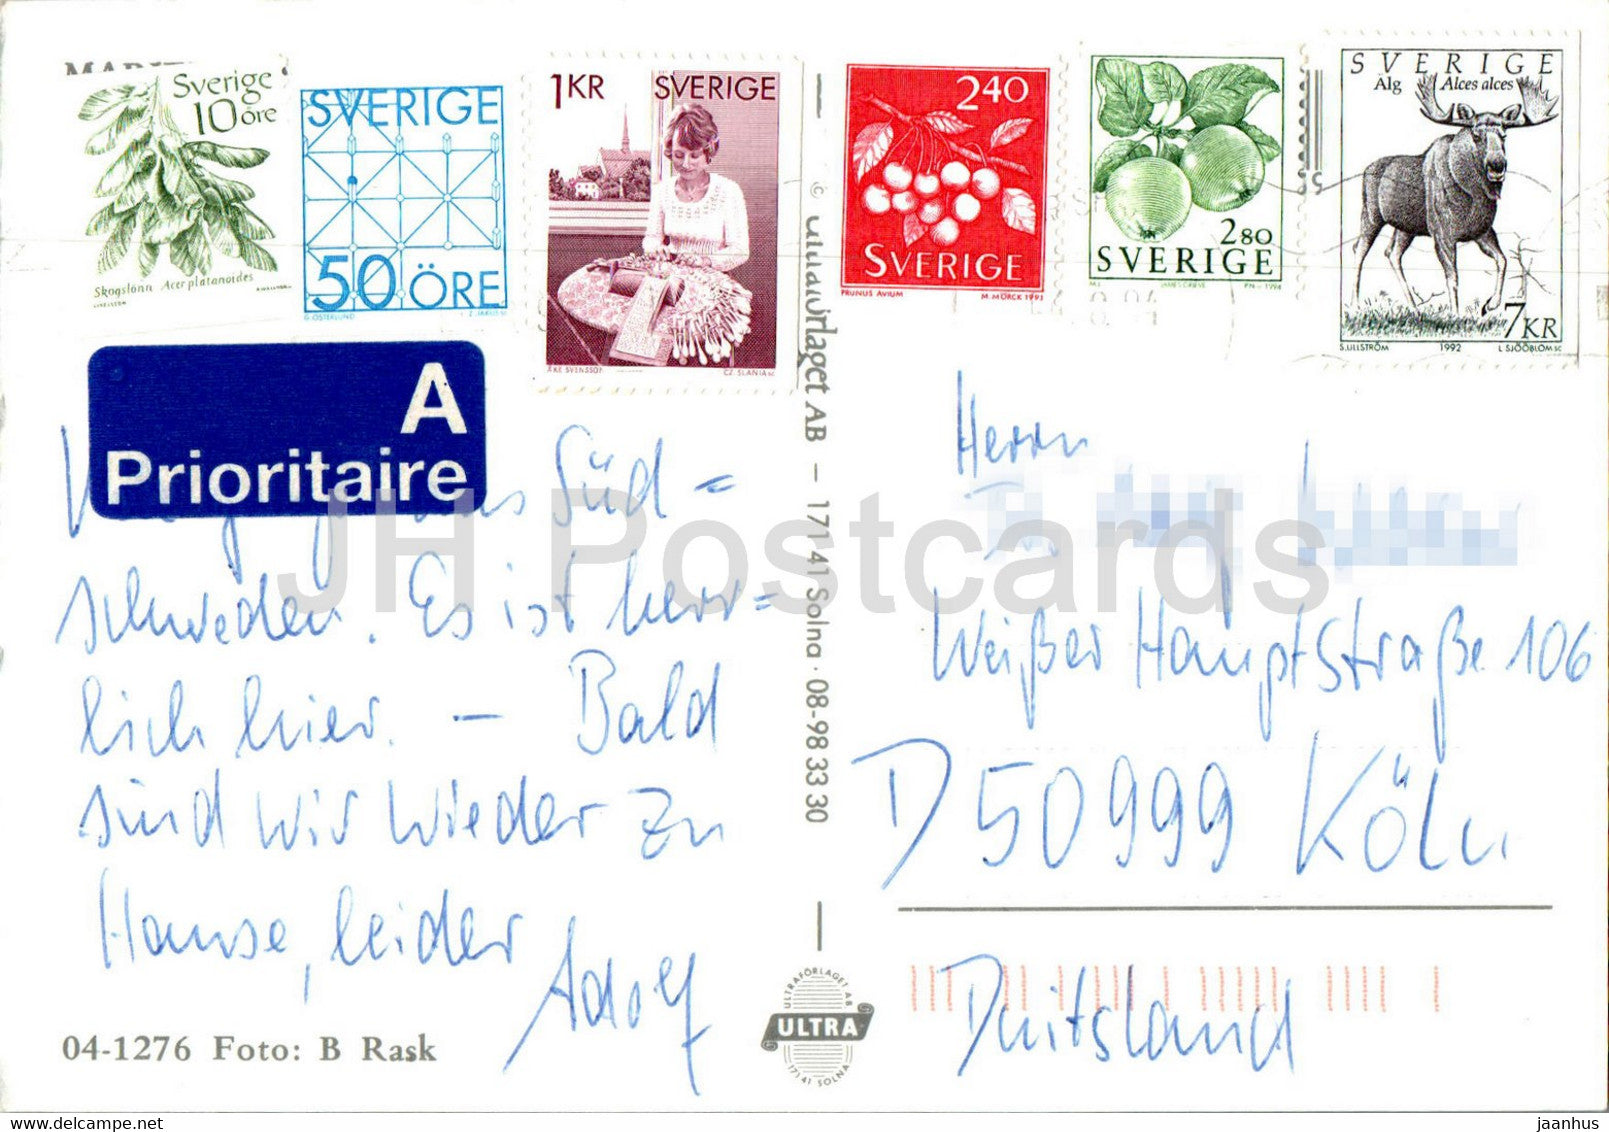 Sverige
10 öre
Skogslönn Acer platanoides
SVERIGE
50 ÖRE
1 KR SVERIGE
ÅKE SVENSSON CZ. SLANIA SC
2 40
SVERIGE
PRUNUS AVIUM M. MÖRCK 1993
2 80
SVERIGE
SVERIGE
Älg Alces alces
7 KR
S. ULLSTRÖM 1992 L. SJÖÖBLOM SC
A
Prioritaire
Süd=
schweden. Es ist herr=
lich hier. – Bald
sind wir wieder zu
Hause, leider
Adolf
04-1276 Foto: B Rask
© Ultraförlaget AB – 171 41 Solna · 08-98 33 30
ULTRAFÖRLAGET AB
ULTRA
171 41 SOLNA
Herrn
Weißer Hauptstraße 106
D 50999 Köln
Duitsland
JH Postcards
delcampe.net
jaanhus